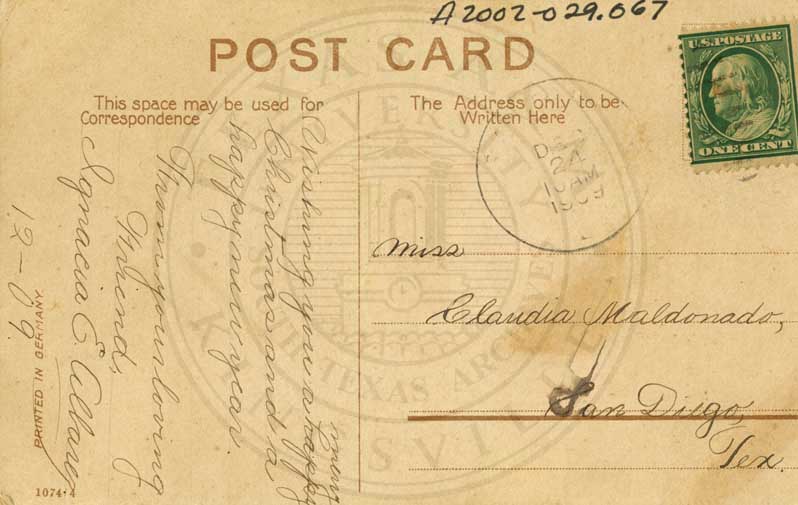 A2002-029.067
POST CARD
U.S. POSTAGE
ONE CENT
This space may be used for
Correspondence
The Address only to be
Written Here
24
10 AM
1909
Wishing you a happy
merry
Christmas and a
happy new year
From your loving
Friend,
Ignacia E
12-09
Miss
Claudia Maldonado,
San Diego,
Tex.
PRINTED IN GERMANY.
1074-4
SOUTH TEXAS ARCHIVES
KINGSVILLE